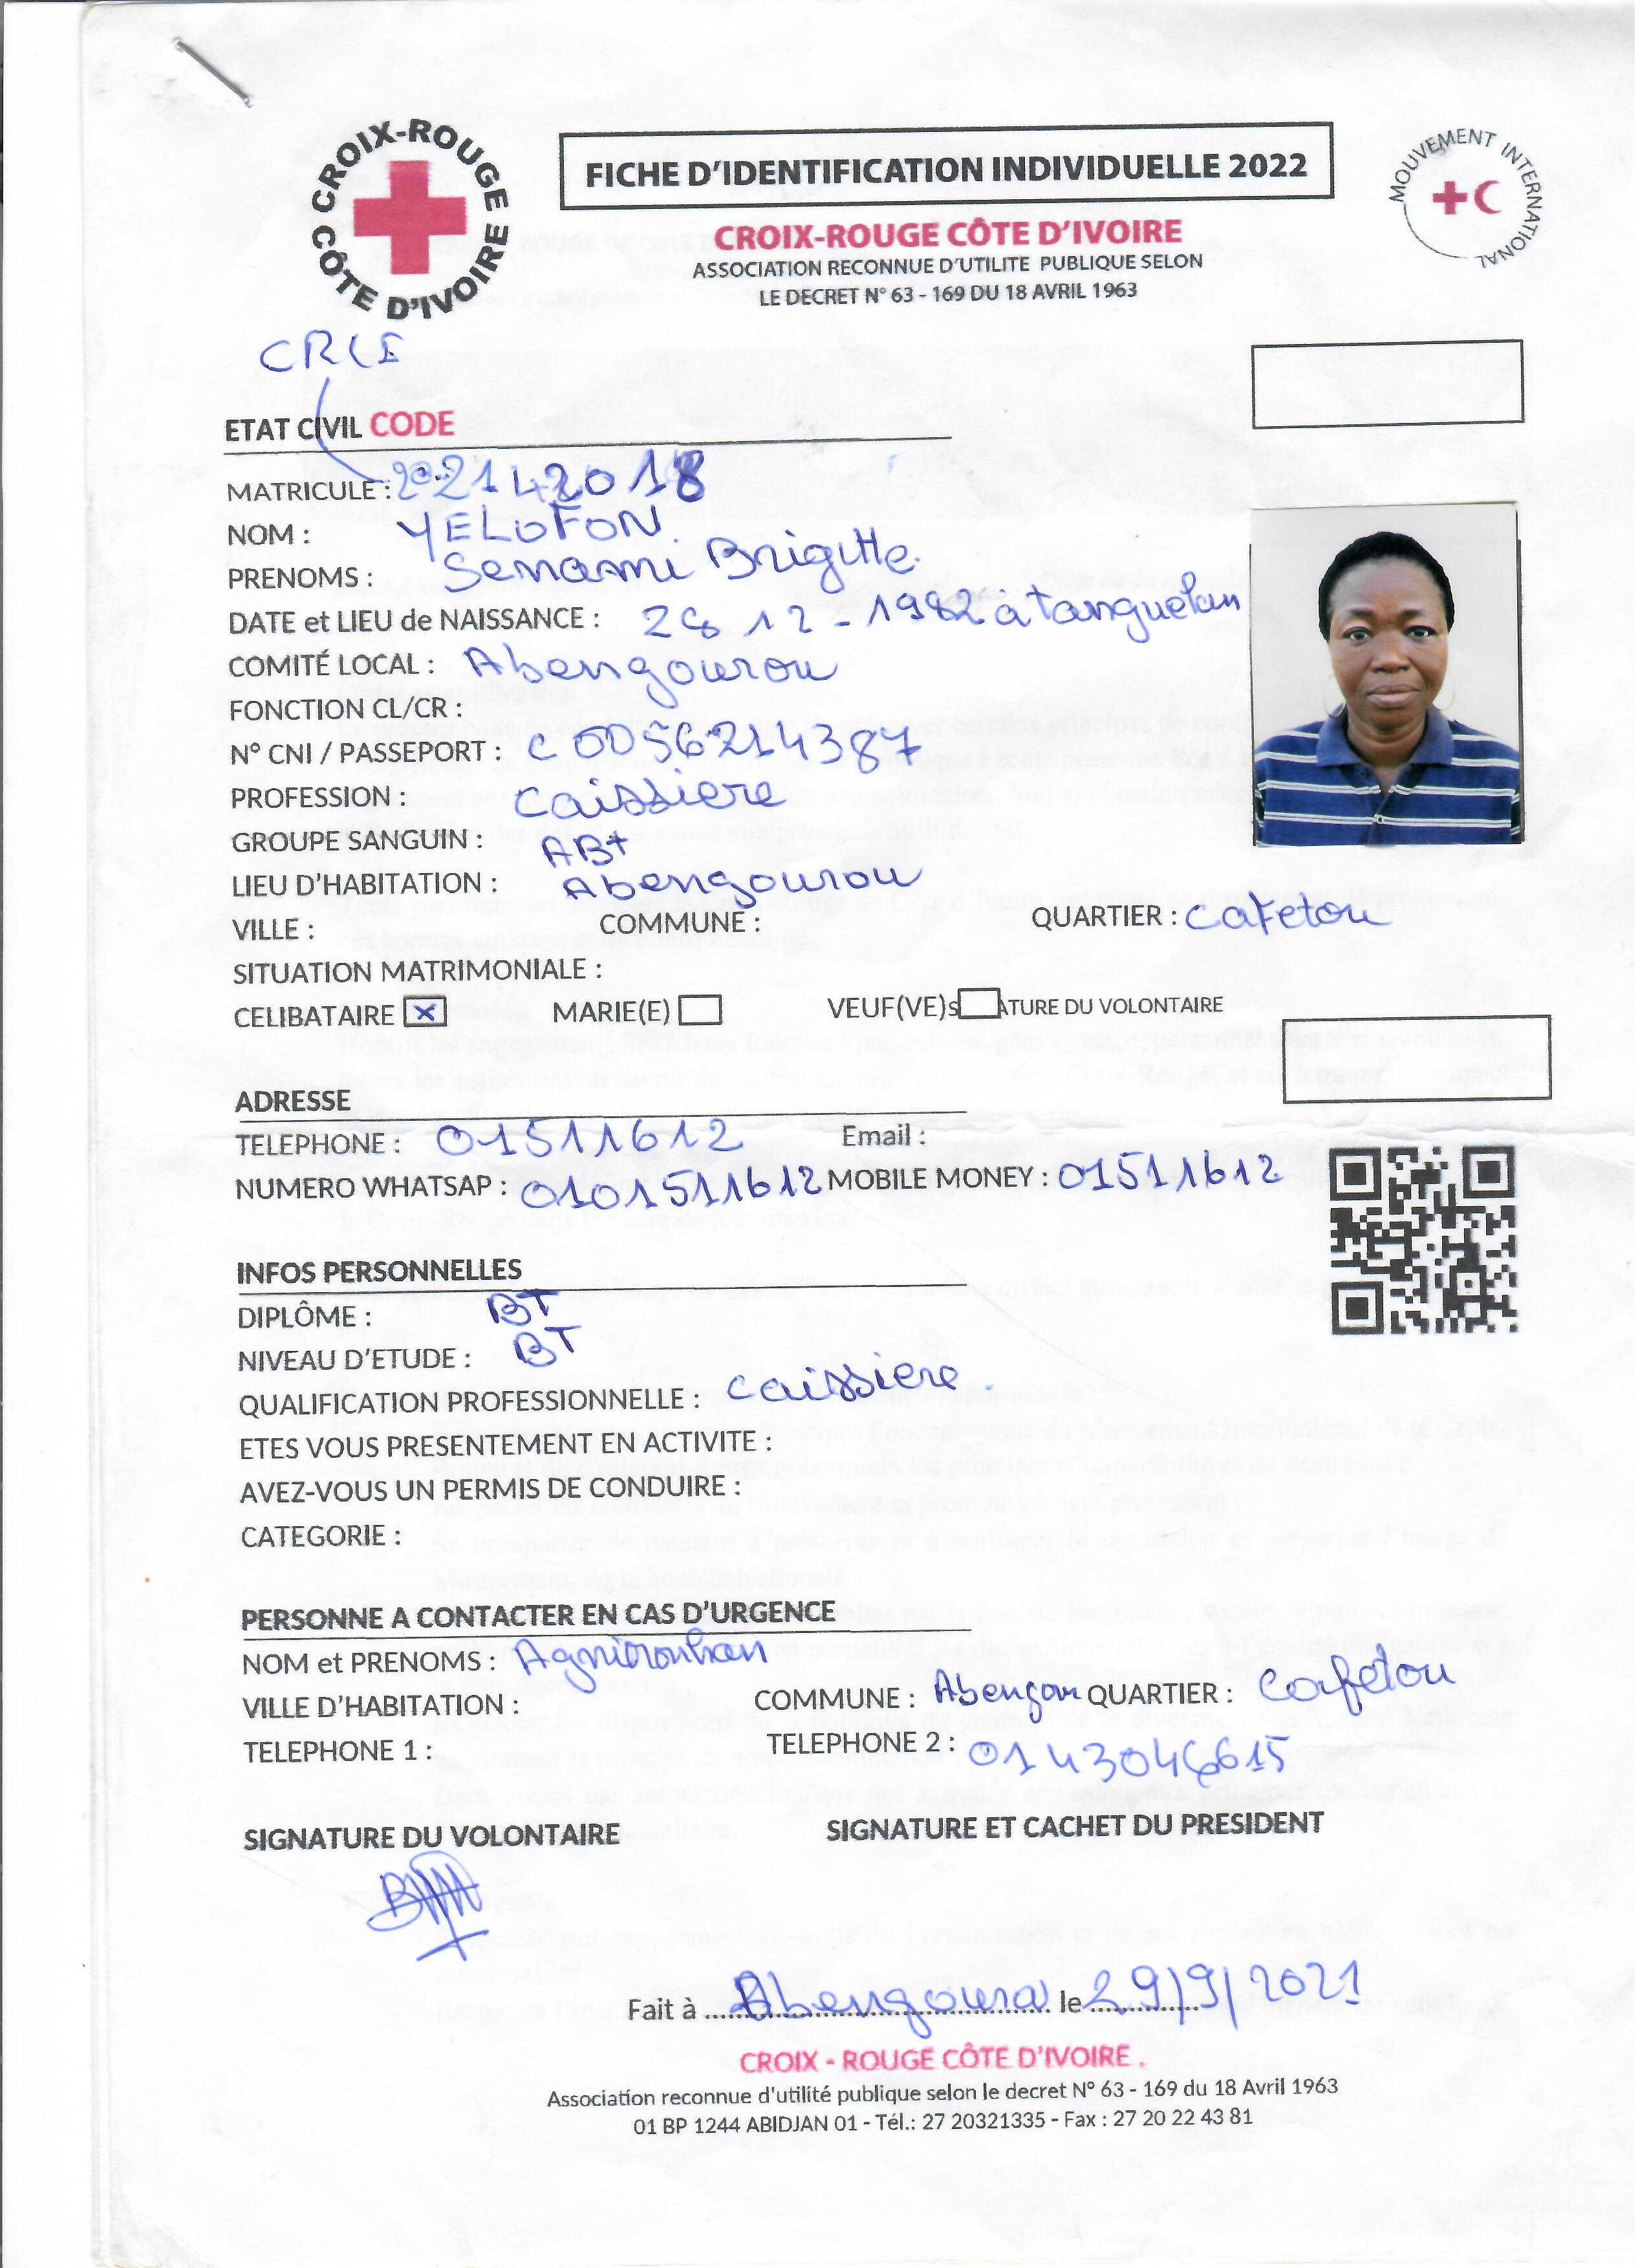 CROIX-ROUGE CÔTE D'IVOIRE
FICHE D'IDENTIFICATION INDIVIDUELLE 2022
MOUVEMENT INTERNATIONAL
CROIX-ROUGE CÔTE D'IVOIRE
ASSOCIATION RECONNUE D'UTILITE PUBLIQUE SELON
LE DECRET N° 63 - 169 DU 18 AVRIL 1963
CRCI
ETAT CIVIL CODE
MATRICULE :
NOM : YELOFON
PRENOMS : Senami Brigitte
DATE et LIEU de NAISSANCE : 28 12 - 1982 à Tanguelan
COMITÉ LOCAL : Abengourou
FONCTION CL/CR :
N° CNI / PASSEPORT : C 0056214387
PROFESSION : caissiere
GROUPE SANGUIN : AB+
LIEU D'HABITATION : Abengourou
VILLE : COMMUNE : QUARTIER : Cafetou
SITUATION MATRIMONIALE :
CELIBATAIRE X MARIE(E) VEUF(VE)s ATURE DU VOLONTAIRE
ADRESSE
TELEPHONE : 01511612 Email :
NUMERO WHATSAP : 0101511612 MOBILE MONEY : 01511612
INFOS PERSONNELLES
DIPLÔME : BT
NIVEAU D'ETUDE : BT
QUALIFICATION PROFESSIONNELLE : caissiere.
ETES VOUS PRESENTEMENT EN ACTIVITE :
AVEZ-VOUS UN PERMIS DE CONDUIRE :
CATEGORIE :
PERSONNE A CONTACTER EN CAS D'URGENCE
NOM et PRENOMS :
VILLE D'HABITATION : COMMUNE : Abengou QUARTIER : Cafetou
TELEPHONE 1 : TELEPHONE 2 : 0143046615
SIGNATURE DU VOLONTAIRE SIGNATURE ET CACHET DU PRESIDENT
Fait à Abengourou le 29/9/2021
CROIX - ROUGE CÔTE D'IVOIRE .
Association reconnue d'utilité publique selon le decret N° 63 - 169 du 18 Avril 1963
01 BP 1244 ABIDJAN 01 - Tél.: 27 20321335 - Fax : 27 20 22 43 81